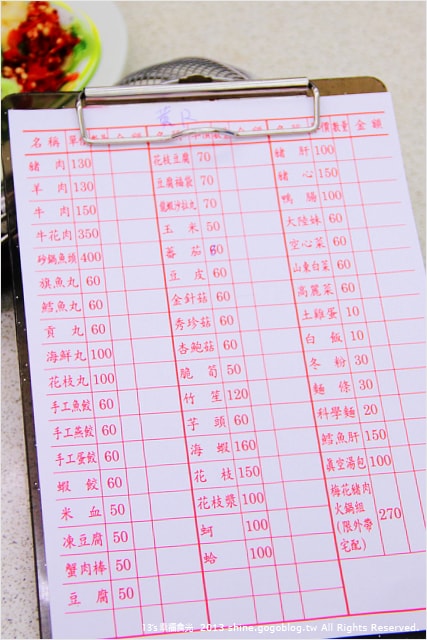 名稱 單價 數量 金額 名稱 單價 數量 金額 名稱 單價 數量 金額
豬肉 130
羊肉 130
牛肉 150
牛花肉 350
砂鍋魚頭 400
旗魚丸 60
鱈魚丸 60
貢丸 60
海鮮丸 100
花枝丸 100
手工魚餃 60
手工燕餃 60
手工蛋餃 60
蝦餃 60
米血 50
凍豆腐 50
蟹肉棒 50
豆腐 50
花枝豆腐 70
豆腐福袋 70
龍蝦沙拉丸 70
玉米 50
蕃茄 60
豆皮 60
金針菇 60
秀珍菇 60
杏鮑菇 60
脆筍 50
竹笙 120
芋頭 60
海蝦 160
花枝 150
花枝漿 100
蚵 100
蛤 100
豬肝 100
豬心 150
鴨腸 100
大陸妹 60
空心菜 60
山東白菜 60
高麗菜 60
土雞蛋 10
白飯 10
冬粉 30
麵條 30
科學麵 20
鱈魚肝 150
真空湯包 100
梅花豬肉
火鍋組
(限外帶
宅配) 270
2013 shine.gogoblog.tw All Rights Reserved.